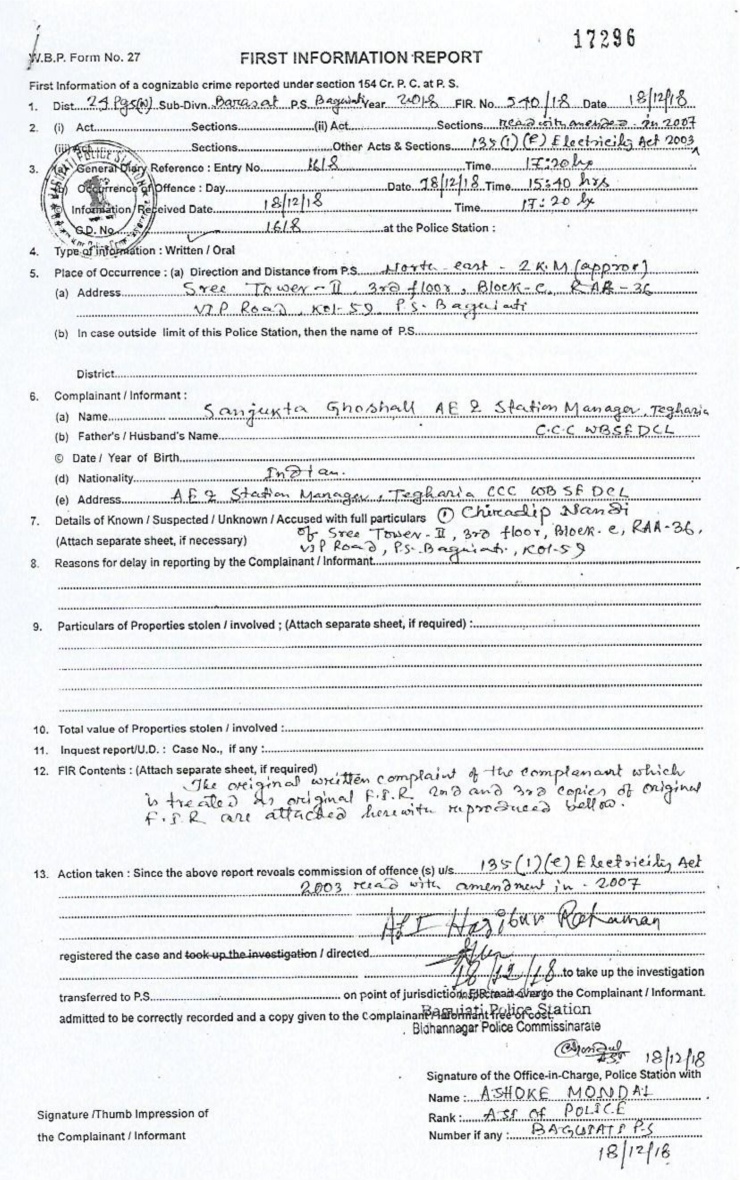 17296
W.B.P. Form No. 27
FIRST INFORMATION REPORT
First Information of a cognizable crime reported under section 154 Cr. P. C. at P. S.
1. Dist. 24 Pgs(N) Sub-Divn. Barasat P.S. Baguiati Year 2018 FIR. No. 540/18 Date 18/12/18
2. (i) Act Sections (ii) Act Sections read with amended in 2007
(iii) Act Sections Other Acts & Sections 135(1)(e) Electricity Act 2003
3. General Diary Reference : Entry No. 1618 Time 17:20 hr
Occurrence of Offence : Day Date 18/12/18 Time 15:40 hrs
Information/Received Date 18/12/18 Time 17:20 hr
G.D. No. 1618 at the Police Station :
4. Type of information : Written / Oral
5. Place of Occurrence : (a) Direction and Distance from P.S. North-east - 2 K.M (approx)
(a) Address Sree Tower-II, 3rd floor, Block-C, RAA-36
VIP Road, Kol-59 P.S. Baguiati
(b) In case outside limit of this Police Station, then the name of P.S.
District
6. Complainant / Informant :
(a) Name Sanjukta Ghoshall AE & Station Manager, Tegharia
(b) Father's / Husband's Name C.C.C WBSEDCL
© Date / Year of Birth
(d) Nationality Indian.
(e) Address AE & Station Manager, Tegharia CCC WBSEDCL
7. Details of Known / Suspected / Unknown / Accused with full particulars ① Chiradip Nandi
(Attach separate sheet, if necessary) of Sree Tower-II, 3rd floor, Block-C, RAA-36,
VIP Road, P.S. Baguiati, Kol-59
8. Reasons for delay in reporting by the Complainant / Informant
9. Particulars of Properties stolen / involved ; (Attach separate sheet, if required) :
10. Total value of Properties stolen / involved :
11. Inquest report/U.D. : Case No., if any :
12. FIR Contents : (Attach separate sheet, if required)
The original written complaint of the complanant which
is treated as original F.I.R 2nd and 3rd copies of original
F.I.R are attached herewith reproduced bellow.
13. Action taken : Since the above report reveals commission of offence (s) u/s. 135(1)(e) Electricity Act
2003 read with amendment in - 2007
ASI Hazibur Rahaman
registered the case and took up the investigation / directed
18/12/18 to take up the investigation
transferred to P.S. on point of jurisdiction. FIR read over to the Complainant / Informant.
admitted to be correctly recorded and a copy given to the Complainant / Informant free of cost.
Baguiati Police Station
Bidhannagar Police Commissinarate
ASI 18/12/18
Signature of the Office-in-Charge, Police Station with
Name : ASHOKE MONDAL
Signature /Thumb Impression of
Rank : ASI OF POLICE
the Complainant / Informant
Number if any : BAGUIATI P.S
18/12/18